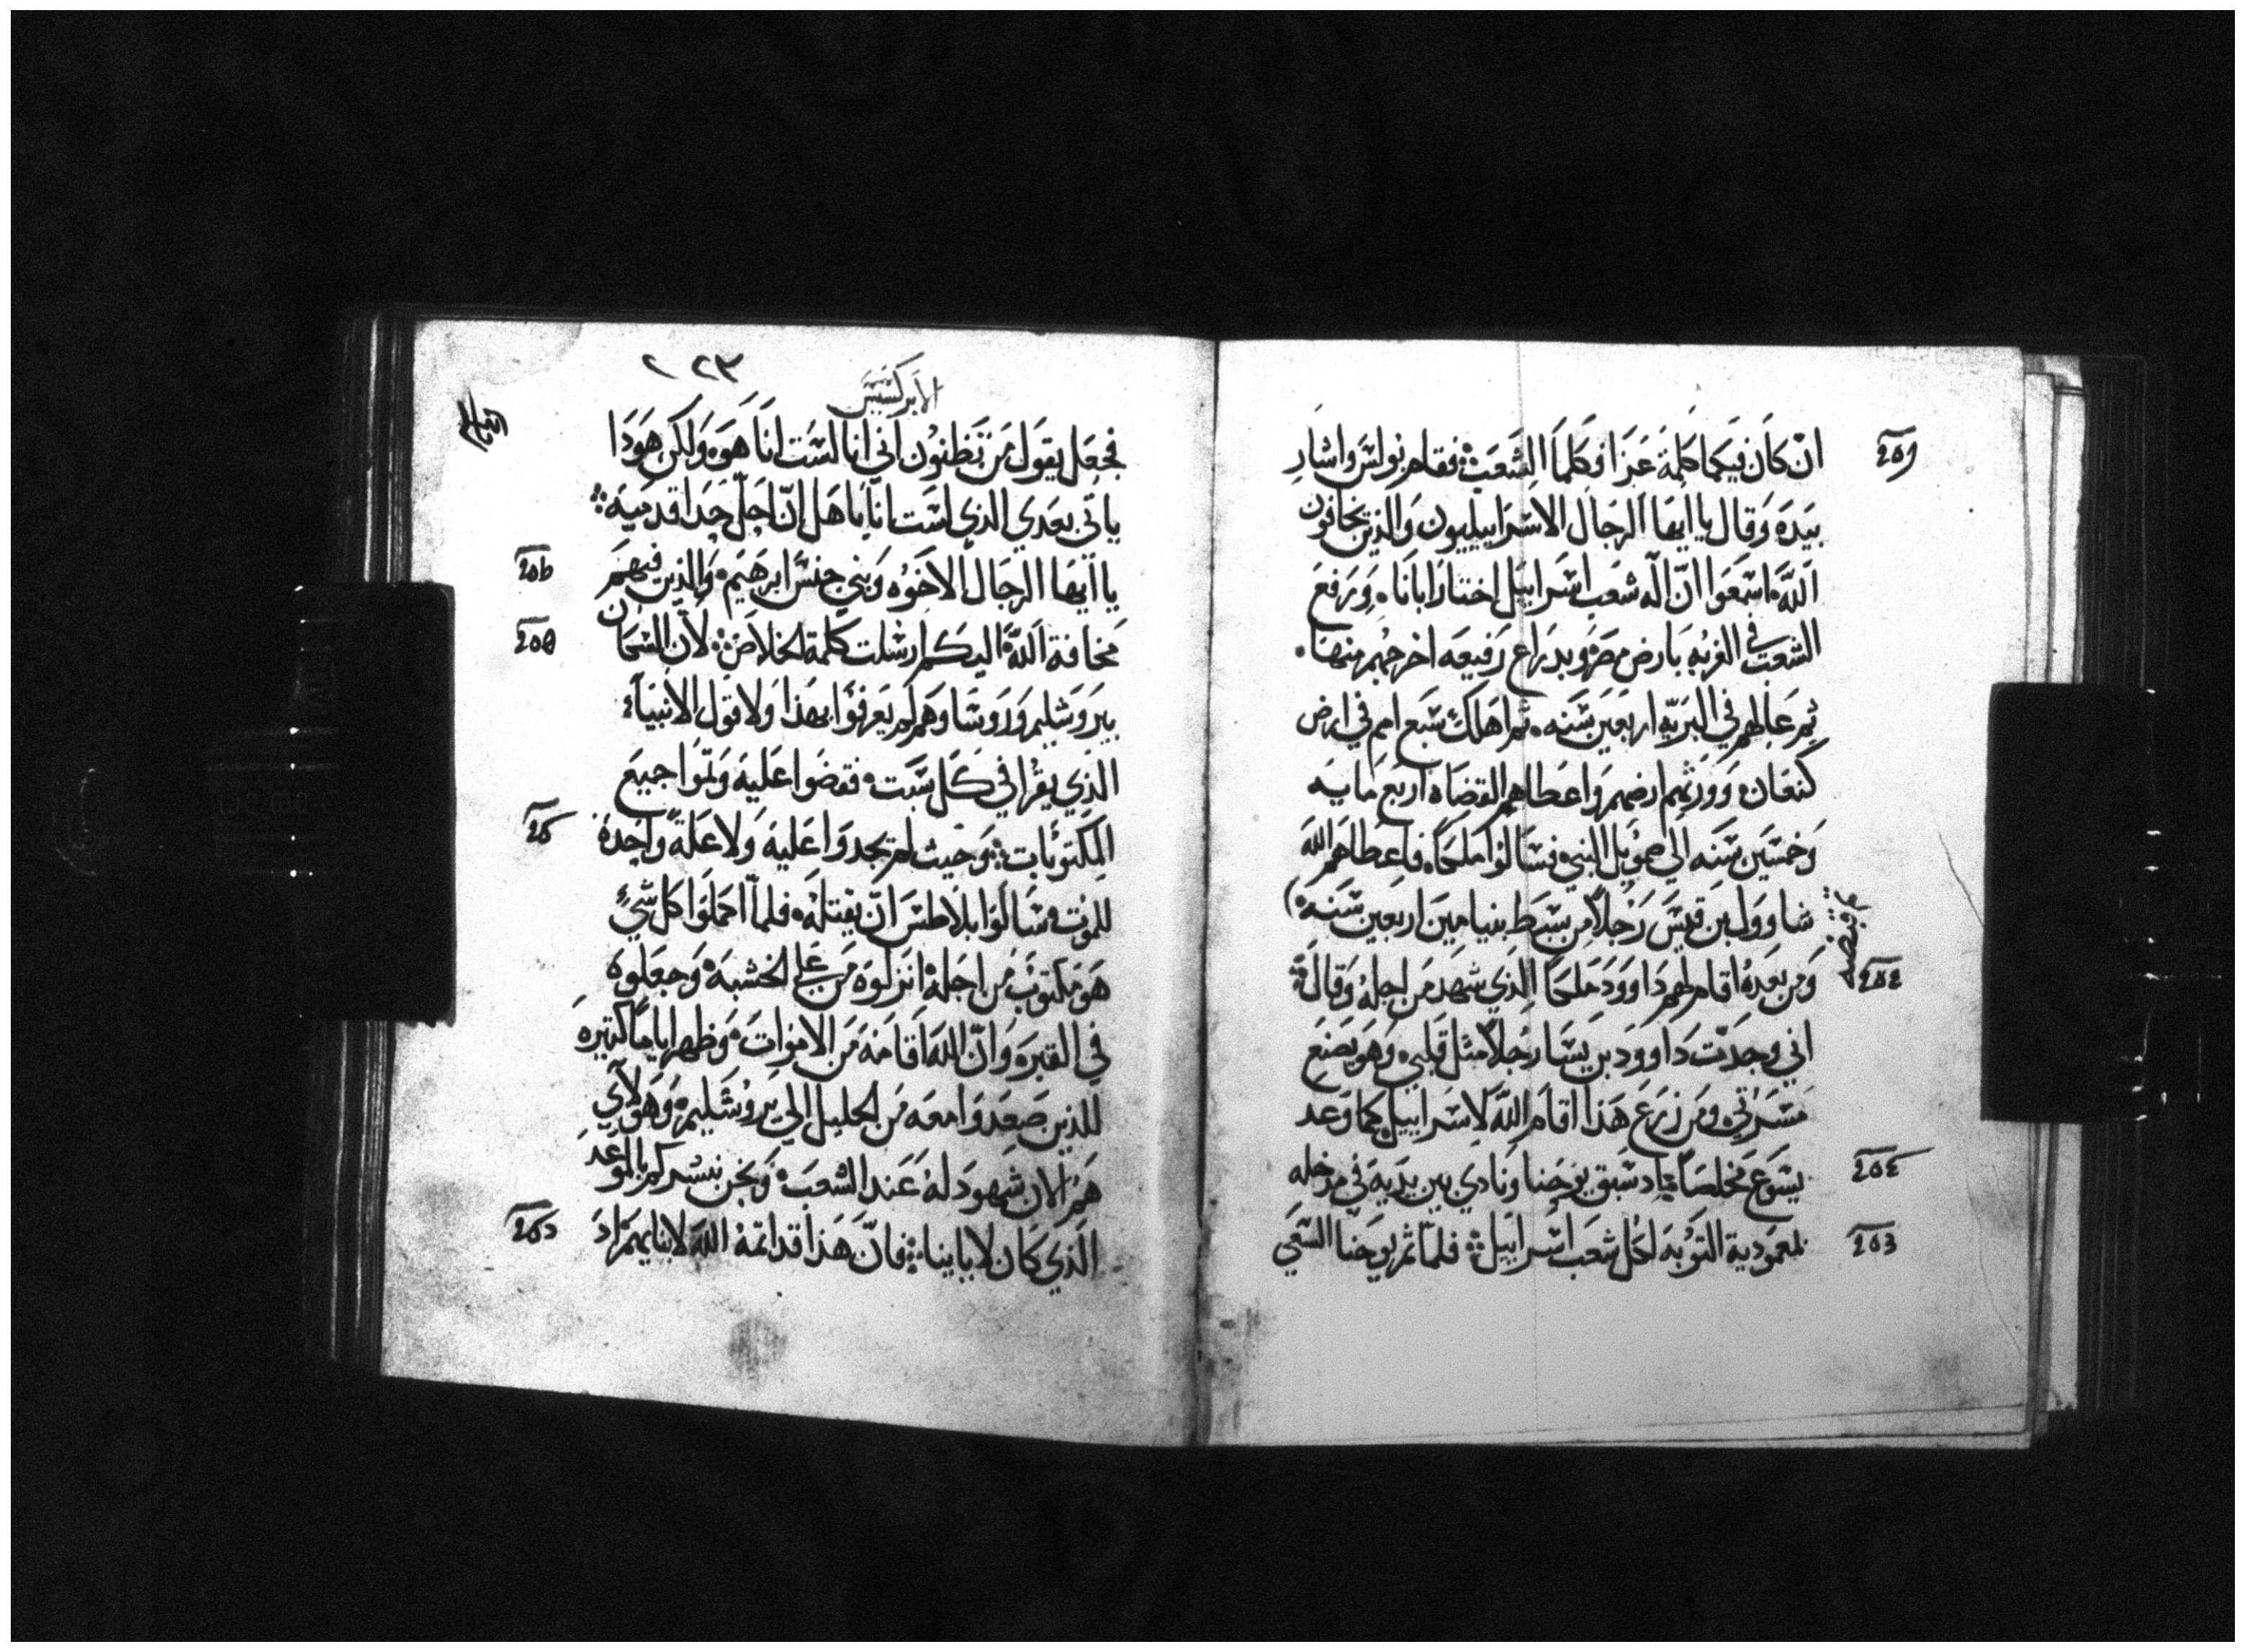 ان كان فيكما كلمة عزا فكلما الشعب فقام بولس واشار
بيده وقال يا ايها الرجال الاسراييليون والذين يخافون
الله اسمعوا ان اله شعب اسراييل اختار ابانا ورفع
الشعب في الغربه بارض مصر وبدراع رفيعه اخرجهم منها
ثم عالهم في البريه اربعين سنه ثم اهلك سبع امم في ارض
كنعان وورثهم ارضهم واعطاهم القضاه اربع مايه
وخمسين سنه الي صمويل النبي فسالوا ملكا فاعطاهم الله
شاوول بن قيس رجلا من سبط بنيامين اربعين سنه
ومن بعده اقام لهم داوود ملكا الذي شهد من اجله وقال
اني وجدت داوود بن يسا رجلا مثل قلبي وهو يصنع
مسرتي ومن زرع هذا اقام الله لاسراييل كما وعد
يسوع مخلصا اد سبق يوحنا ونادي بين يديه في مدخله
بمعمودية التوبه لكل شعب اسراييل فلما تم يوحنا السعي
٢٢٣
الابركسيس
فجعل يقول من تظنون اني انا لست انا هو ولكن هودا
ياتي بعدي الذي لست انا باهل ان احل حدا قدميه
يا ايها الرجال الاخوه وبني جنس ابرهيم والذين فيهم
مخافة الله اليكم ارسلت كلمة الخلاص لان السكان
بيروشليم وروسا وهم لم يعرفوا بهذا ولا قول الانبياء
الذي يقرا في كل سبت فقضوا عليه وتموا جميع
المكتوبات وحيث لم يجدوا عليه ولا علة واحدة
للموت سالوا بلاطس ان يقتله فلما اكملوا كل شي
هو مكتوب من اجله انزلوه من علي الخشبه وجعلوه
في القبر وان الله اقامه من الاموات وظهر اياما كتيره
للذين صعدوا معه من الجليل الي يروشليم وهولاي
هم الان شهود له عند الشعب ونحن نبشركم بالموعد
الذي كان لابايينا فان هذا قد اتمه الله لابنايهم اد